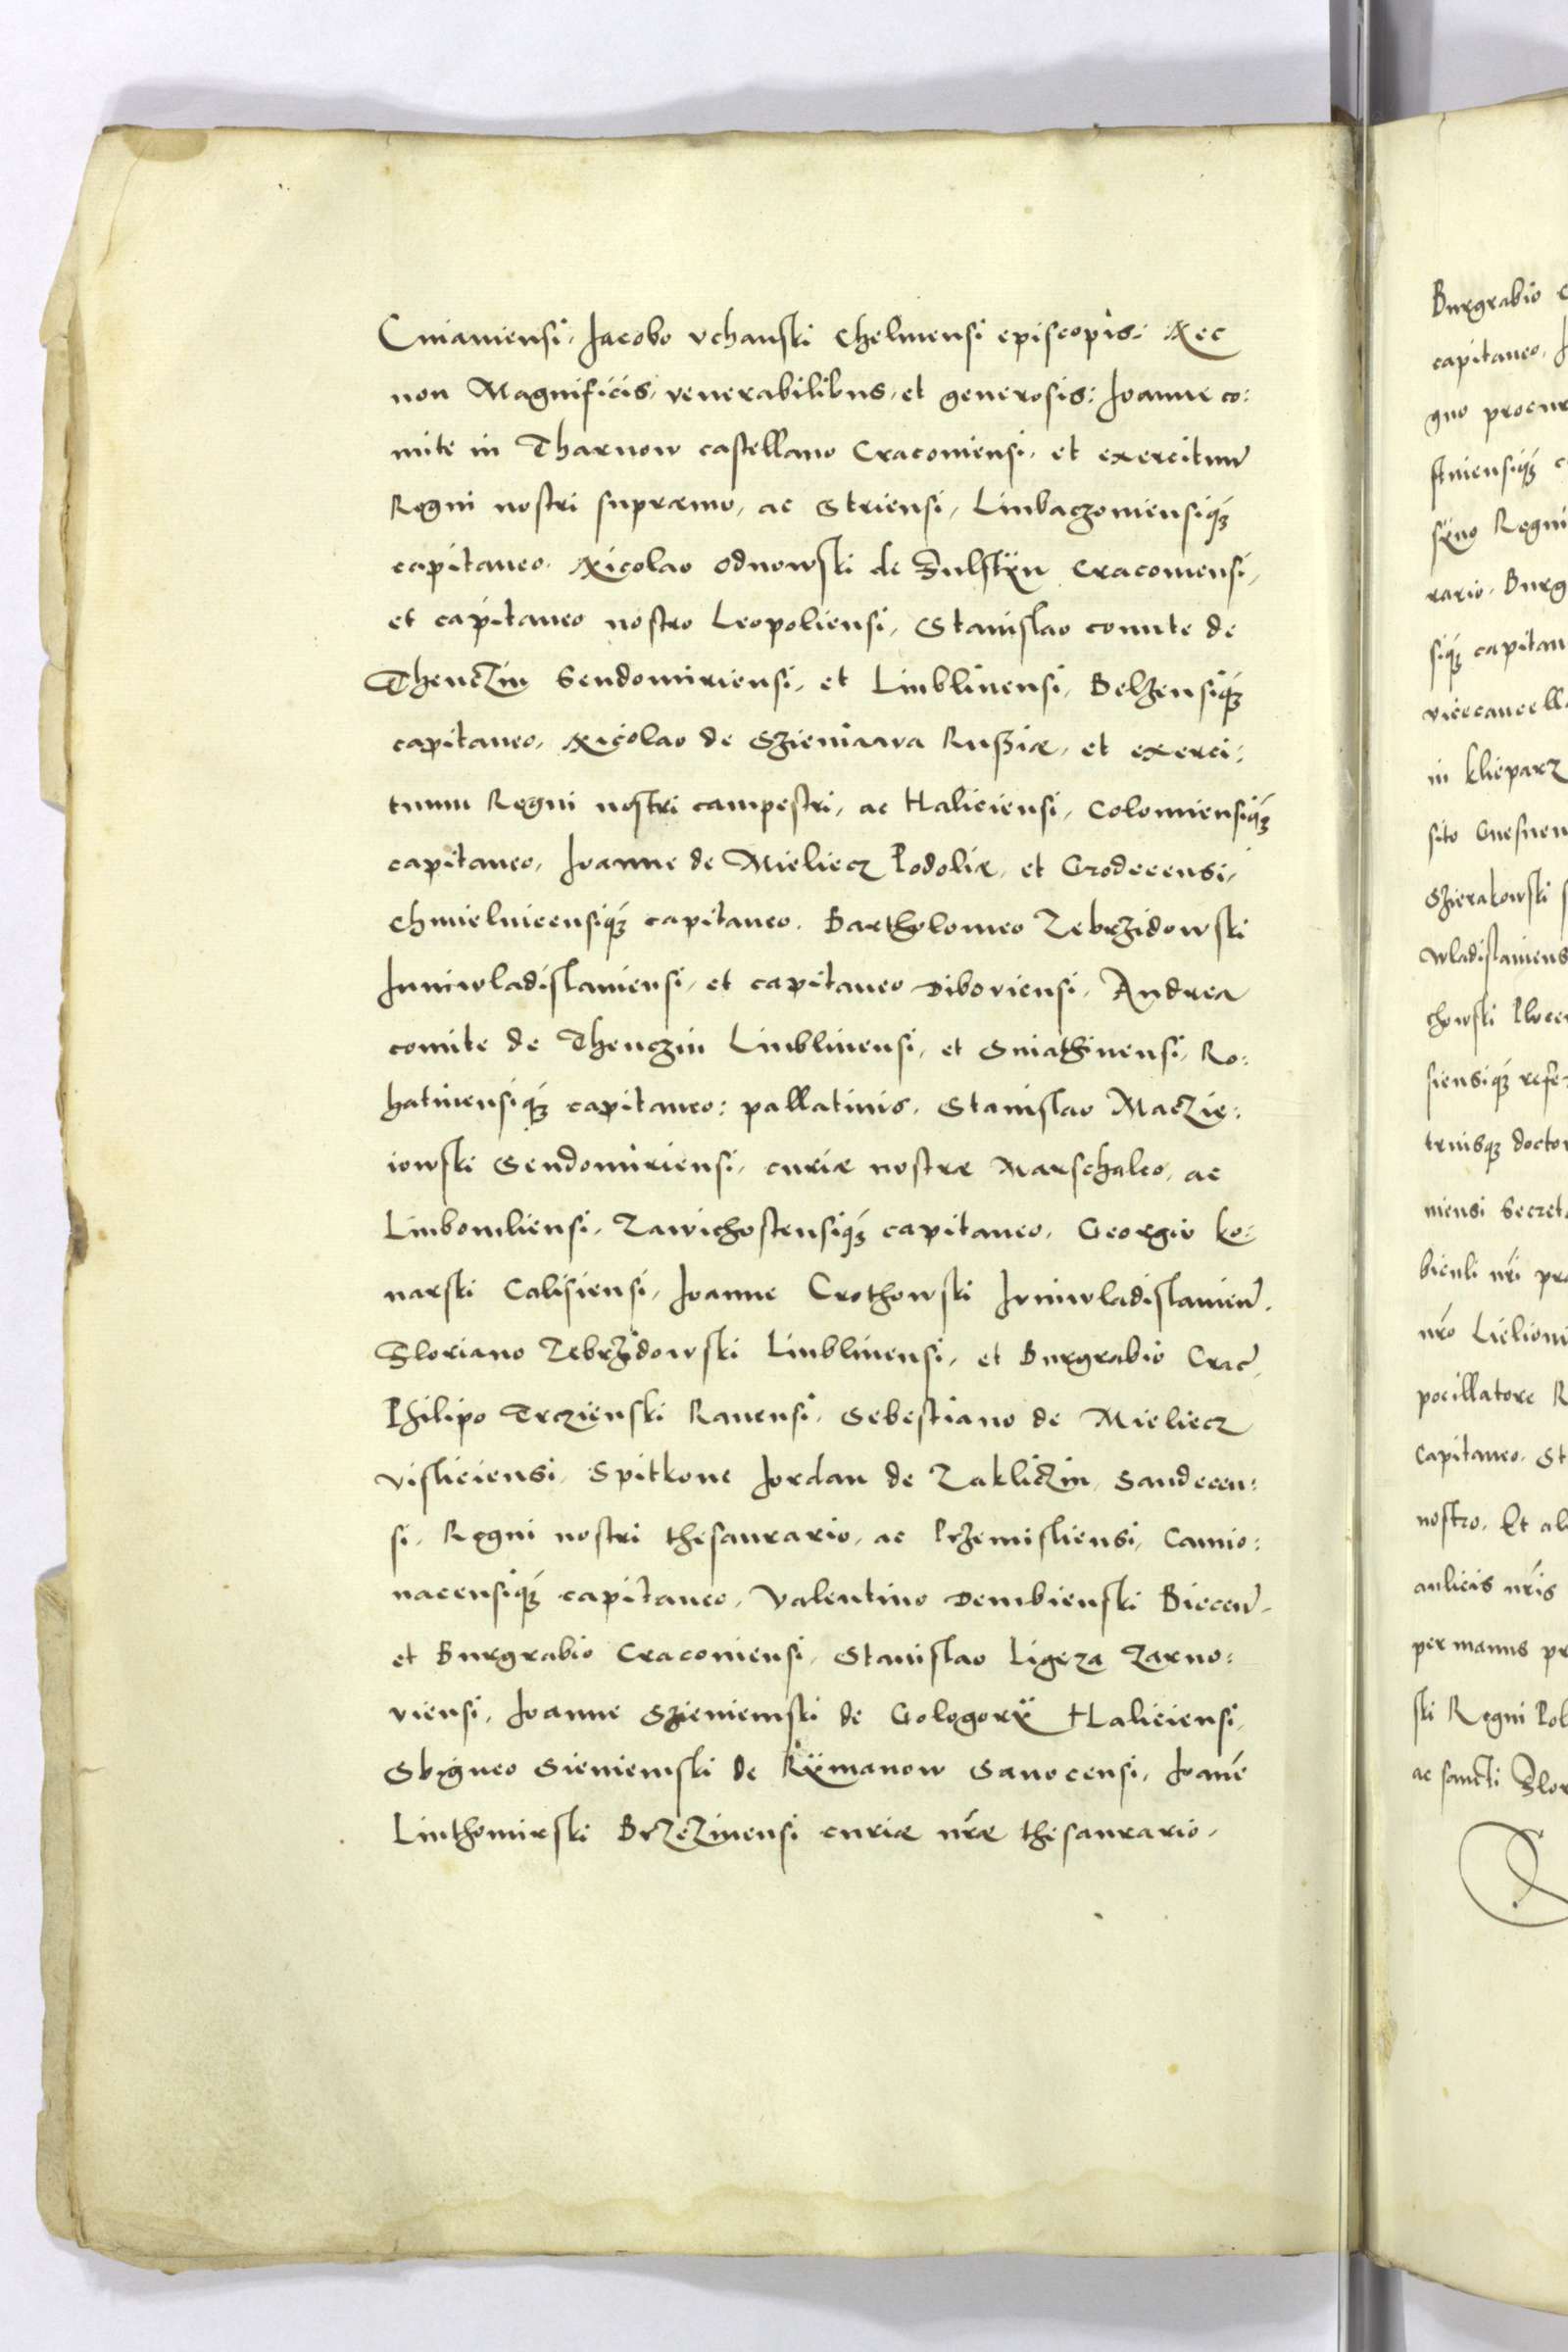 Cuiaviensi, Jacobo Vchanski Chelmensi episcopis: Nec
non Magnificis, venerabilibus, et generosis: Joanne co:
mite in Tharnow castellano Cracoviensi, et exercituũ
Regni nostri supræmo, ac Striensi, Liubaczoviensiqʒ
capitaneo, Nicolao Odnowski de Fulstÿn Cracoviensi,
et capitaneo nostro Leopoliensi, Stanislao comite de
Thenczin Sendomiriensi, et Liublinensi, Belzensiqʒ
capitaneo, Nicolao de Szieniawa Russiæ, et exerci:
tuum Regni nostri campestri, ac Haliciensi, Colomiensiqʒ
capitaneo, Joanne de Mieliecz Podoliæ, et Grodecensi,
Chmielnicensiqʒ capitaneo. Bartholomeo Zebrzidowski
Juniwladislaviensi, et capitaneo Diboviensi, Andrea
comite de Thenczin Liublinensi, et Sniathinensi, Ro:
hatinensiqʒ capitaneo: pallatinis, Stanislao Maczie:
iowski Sendomiriensi, curiæ nostræ Marschalco, ac
Liubomliensi, Zawichostensiqʒ capitaneo, Georgio Ko:
narski Calisiensi, Joanne Crothowski Juniwladislavieñ.
Floriano Zebrzidowski Liublinensi, et Burgrabio Crac̃,
Philipo Trczienski Ravensi, Sebestiano de Mieliecz
Visliciensi, Spitkone Jordan de Zakliczin, Sandecen:
si, Regni nostri thesaurario, ac Przemisliensi, Camio:
nacensiqʒ capitaneo, Valentino Dembienski Bieceñ,
et Burgrabio Cracoviensi, Stanislao Ligeza Zarno:
viensi, Joanne Szieniewski de Gologorÿ Haliciensi,
Sbigneo Sieniewski de Rÿmanow Sanocensi, Joañe
Liuthomirski Brzezinensi curiæ nr̃æ thesaurario,
Burgrabio
capitaneo,
gno procur
siqʒ capitan
sito Gnesnen
Szierakowski
Wladislaviens
siensiqʒ refe
nr̃o
pocillatore R
Capitaneo. St
nostro. Et al
aulicis nr̃is
per manus pr
ski Regni Pol
ac sancti Flor